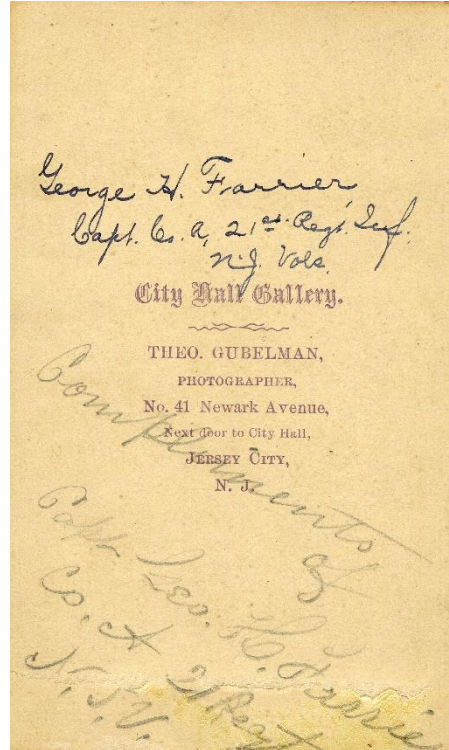 George H. Farrier
Capt. Co. A, 21st Regt. Inf.
N.J. Vols.
City Hall Gallery.
THEO. GUBELMAN,
PHOTOGRAPHER,
No. 41 Newark Avenue,
Next door to City Hall,
JERSEY CITY,
N. J.
Compliments
of
Capt Geo. H. Farrie
Co. A 21 Regt
N.J.V.